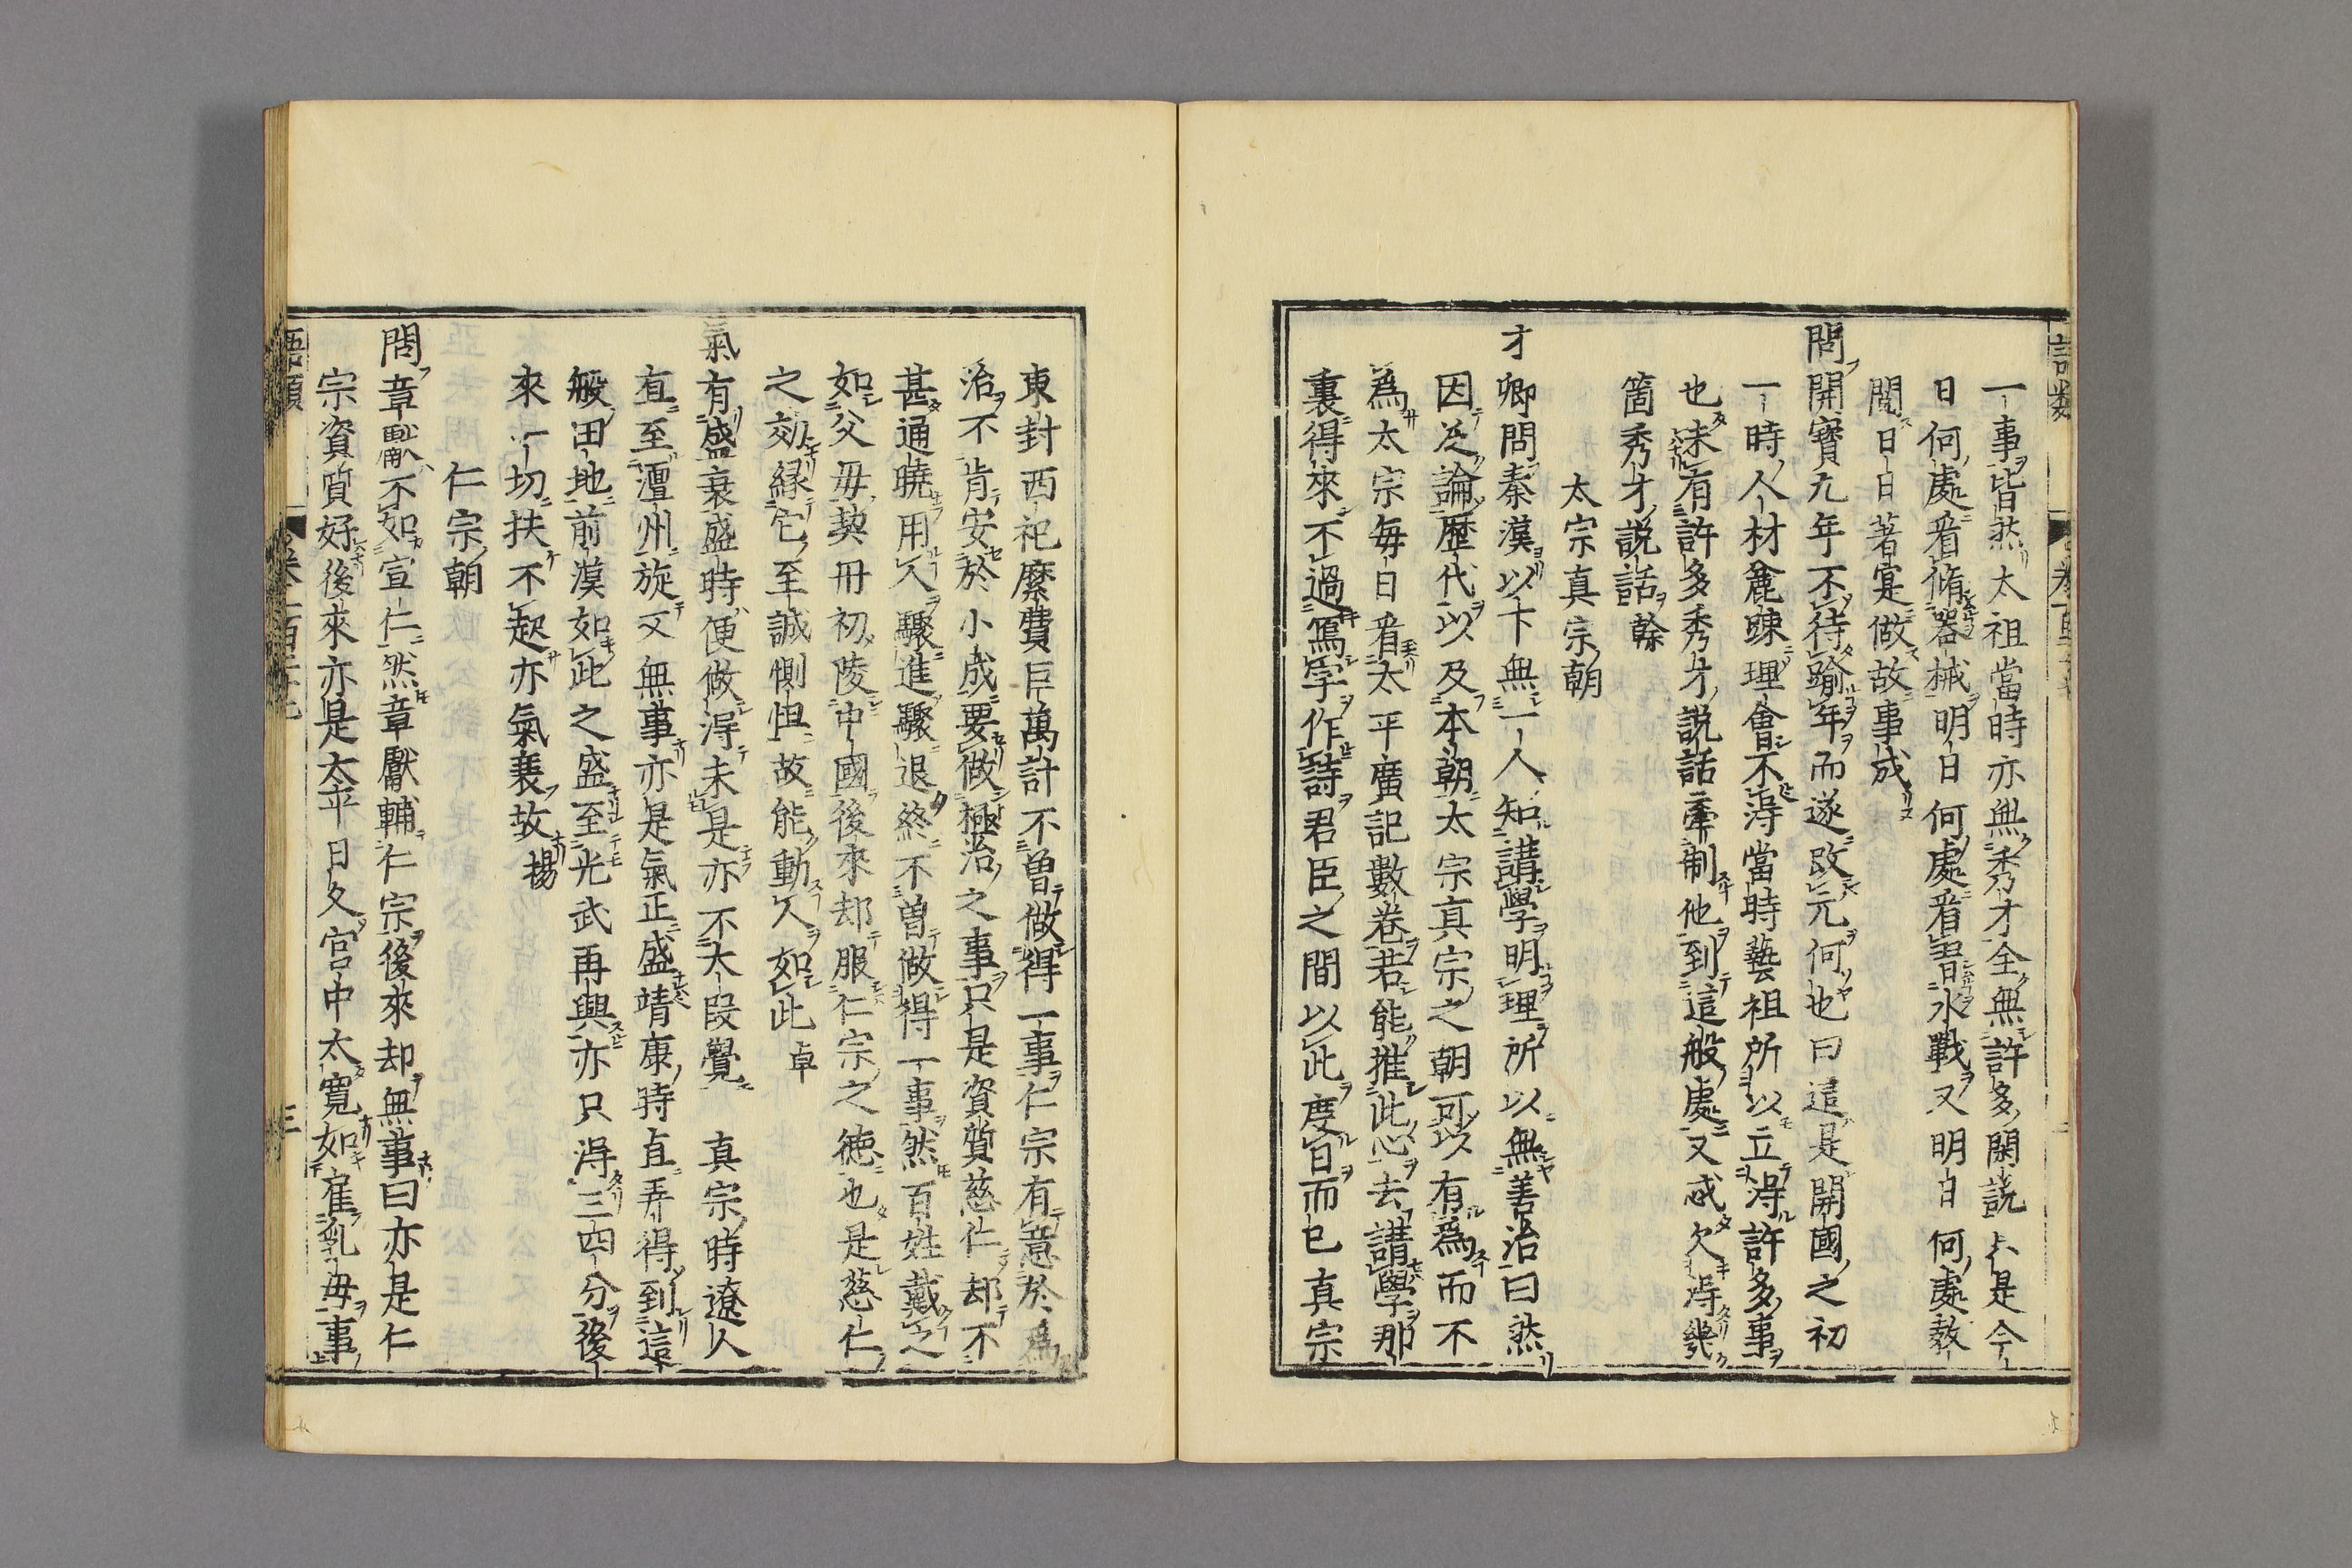 一事皆然太祖當時亦無秀才全無許多閑說只是今
日何處看脩器械明日何處看習水戰又明日何處教
閱日日著寔做故事成
問開寶九年不待踰年而遂改元何也曰這是開國之初
一時人材麄疎理會不得當時藝祖所以立得許多事
也未有許多秀才說話牽制他到這般處又忒欠得幾
箇秀才說話 榦
太宗真宗朝
才卿問秦漢以下無一人知講學明理所以無善治曰然
因泛論歷代以及本朝太宗真宗之朝可以有為而不
為太宗毎日看太平廣記數巻若能推此心去講學那
裏得來不過寫字作詩君臣之間以此度日而已真宗
東封西祀糜費巨萬計不曽做得一事仁宗有意於為
治不肯安於小成要做極治之事只是資質慈仁却不
甚通曉用人驟進驟退終不曽做得一事然百姓戴之
如父毋契丹初陵中國後來却服仁宗之徳也是慈仁
之効縁它至誠惻怛故能動人如此 卓
氣有盛衰盛時便做得未是亦不大段覺 真宗時遼人
直至澶州旋又無事亦是氣正盛靖康時直弄得到這
般田地前漢如此之盛至光武再興亦只得三四分後
來一切扶不起亦氣衰故 揚
仁宗朝
問章獻不如宣仁然章獻輔仁宗後來却無事曰亦是仁
宗資質好後來亦是太平日久宮中太寛如雇乳毋事
語類 三